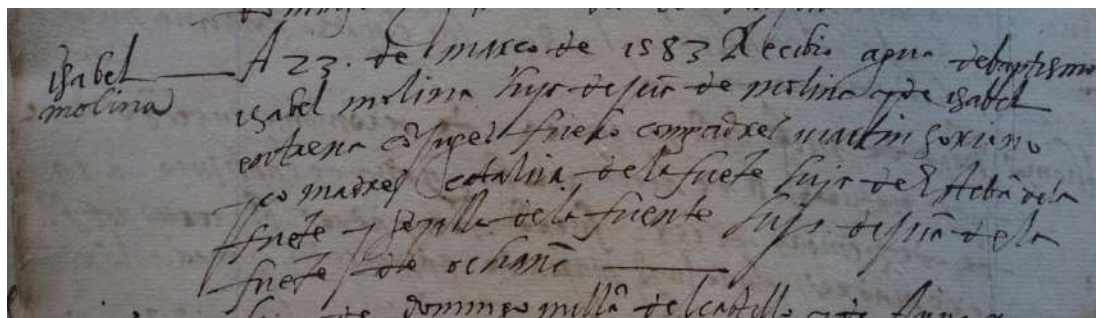 isabel
molina
A 23. de março de 1583 Recibio agua de baptismo
isabel molina hija de juā de molina y de isabel
compadres martin soriano
comadres catalina de la fuēte hija de estebā de la
fuēte y de la fuente hija de juā de la
fuēte de ochanē
domingo millā del castillo y de